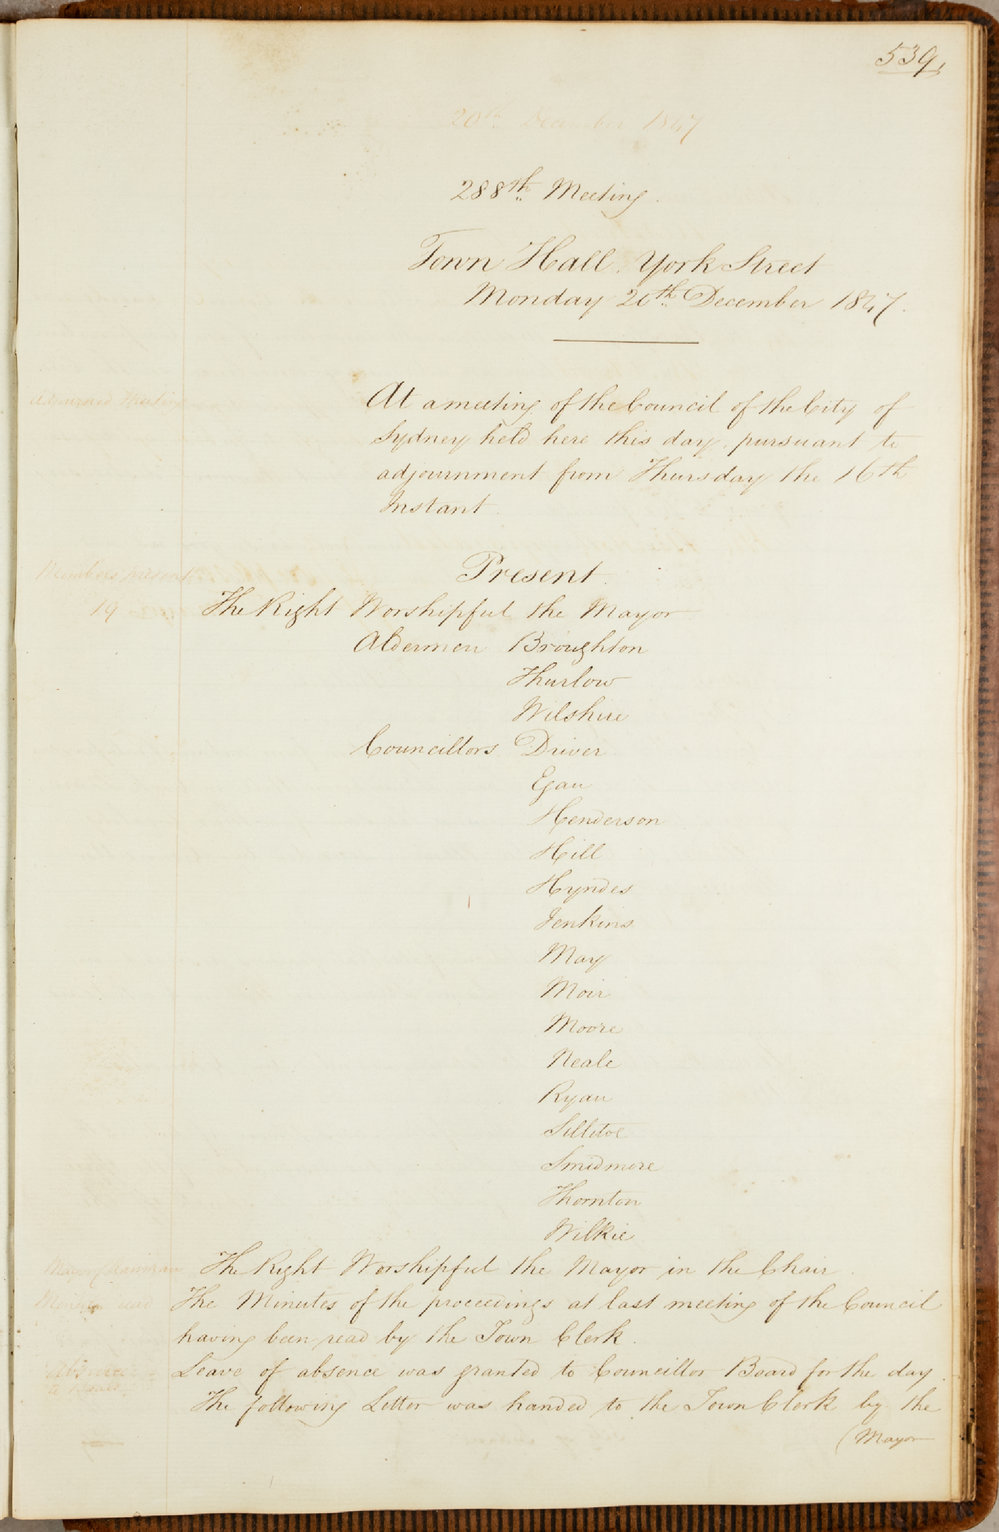 539,
20th December 1847
288th Meeting.
Town Hall. York Street
Monday 20th December 1847.
Adjourned Meeting
At a meeting of the Council of the City of
Sydney held here this day, pursuant to
adjournment from Thursday the 16th
Instant
Members present
Present.
19
The Right Worshipful the Mayor
Aldermen Broughton
Thurlow
Wilshire
Councillors Driver
Egan
Henderson
Hill
Hyndes
Jenkins
May
Moir
Moore
Neale
Ryan
Sillitoe
Smidmore
Thornton
Wilkie
Mayor Chairman
The Right Worshipful the Mayor in the Chair.
Minutes read
The Minutes of the proceedings at last meeting of the Council
having been read by the Town Clerk.
Absence
Leave of absence was granted to Councillor Board for the day.
The following Letter was handed to the Town Clerk by the
(Mayor